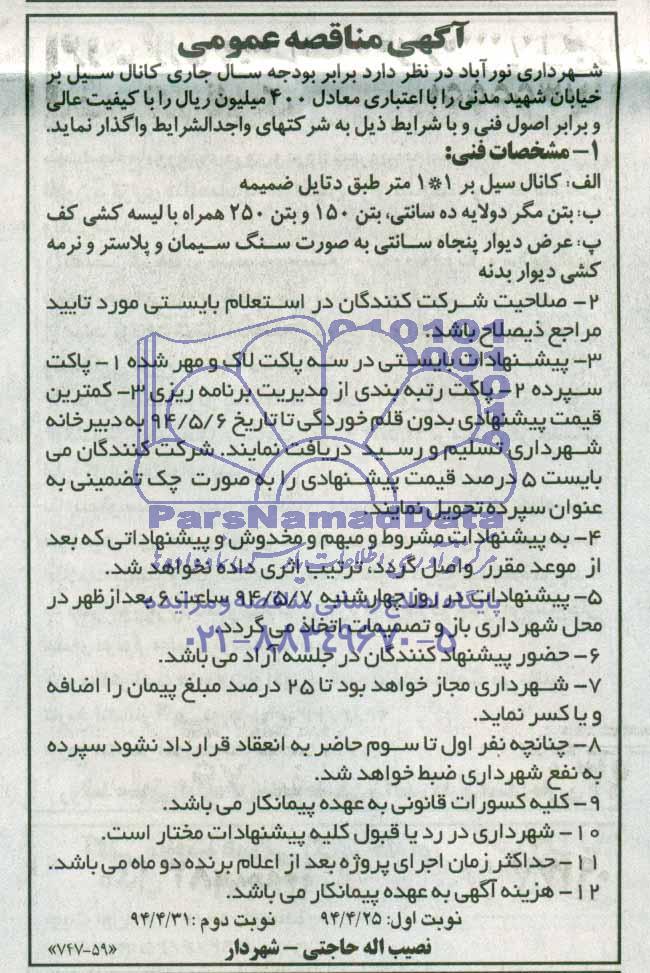 آگهی مناقصه عمومی
شهرداری نورآباد در نظر دارد برابر بودجه سال جاری کانال سیل بر
خیابان شهید مدنی را با اعتباری معادل ۴۰۰ میلیون ریال را با کیفیت عالی
و برابر اصول فنی و با شرایط ذیل به شرکتهای واجدالشرایط واگذار نماید.
۱- مشخصات فنی:
الف: کانال سیل بر ۱*۱ متر طبق دتایل ضمیمه
ب: بتن مگر دولایه ده سانتی، بتن ۱۵۰ و بتن ۲۵۰ همراه با لیسه کشی کف
پ: عرض دیوار پنجاه سانتی به صورت سنگ سیمان و پلاستر و نرمه
کشی دیوار بدنه
۲- صلاحیت شرکت کنندگان در استعلام بایستی مورد تایید
مراجع ذیصلاح باشد.
۳- پیشنهادات بایستی در سه پاکت لاک و مهر شده ۱- پاکت
سپرده ۲- پاکت رتبه بندی از مدیریت برنامه ریزی ۳- کمترین
قیمت پیشنهادی بدون قلم خوردگی تا تاریخ ۹۴/۵/۶ به دبیرخانه
شهرداری تسلیم و رسید دریافت نمایند. شرکت کنندگان می
بایست ۵ درصد قیمت پیشنهادی را به صورت چک تضمینی به
عنوان سپرده تحویل نمایند.
ParsNamadData
۴- به پیشنهادات مشروط و مبهم و مخدوش و پیشنهاداتی که بعد
از موعد مقرر واصل گردد، ترتیب اثری داده نخواهد شد.
۵- پیشنهادات در روز چهارشنبه ۹۴/۵/۷ ساعت ۶ بعدازظهر در
پایگاه اطلاع رسانی مناقصه و مزایده
محل شهرداری باز و تصمیمات اتخاذ می گردد.
۰۲۱-۸۸۳۴۹۶۷۰-۵
۶- حضور پیشنهاد کنندگان در جلسه آزاد می باشد.
۷- شهرداری مجاز خواهد بود تا ۲۵ درصد مبلغ پیمان را اضافه
و یا کسر نماید.
۸- چنانچه نفر اول تا سوم حاضر به انعقاد قرارداد نشود سپرده
به نفع شهرداری ضبط خواهد شد.
۹- کلیه کسورات قانونی به عهده پیمانکار می باشد.
۱۰- شهرداری در رد یا قبول کلیه پیشنهادات مختار است.
۱۱- حداکثر زمان اجرای پروژه بعد از اعلام برنده دو ماه می باشد.
۱۲- هزینه آگهی به عهده پیمانکار می باشد.
نوبت اول: ۹۴/۴/۲۵ نوبت دوم: ۹۴/۴/۳۱
نصیب اله حاجتی - شهردار «۷۴۷-۵۹»